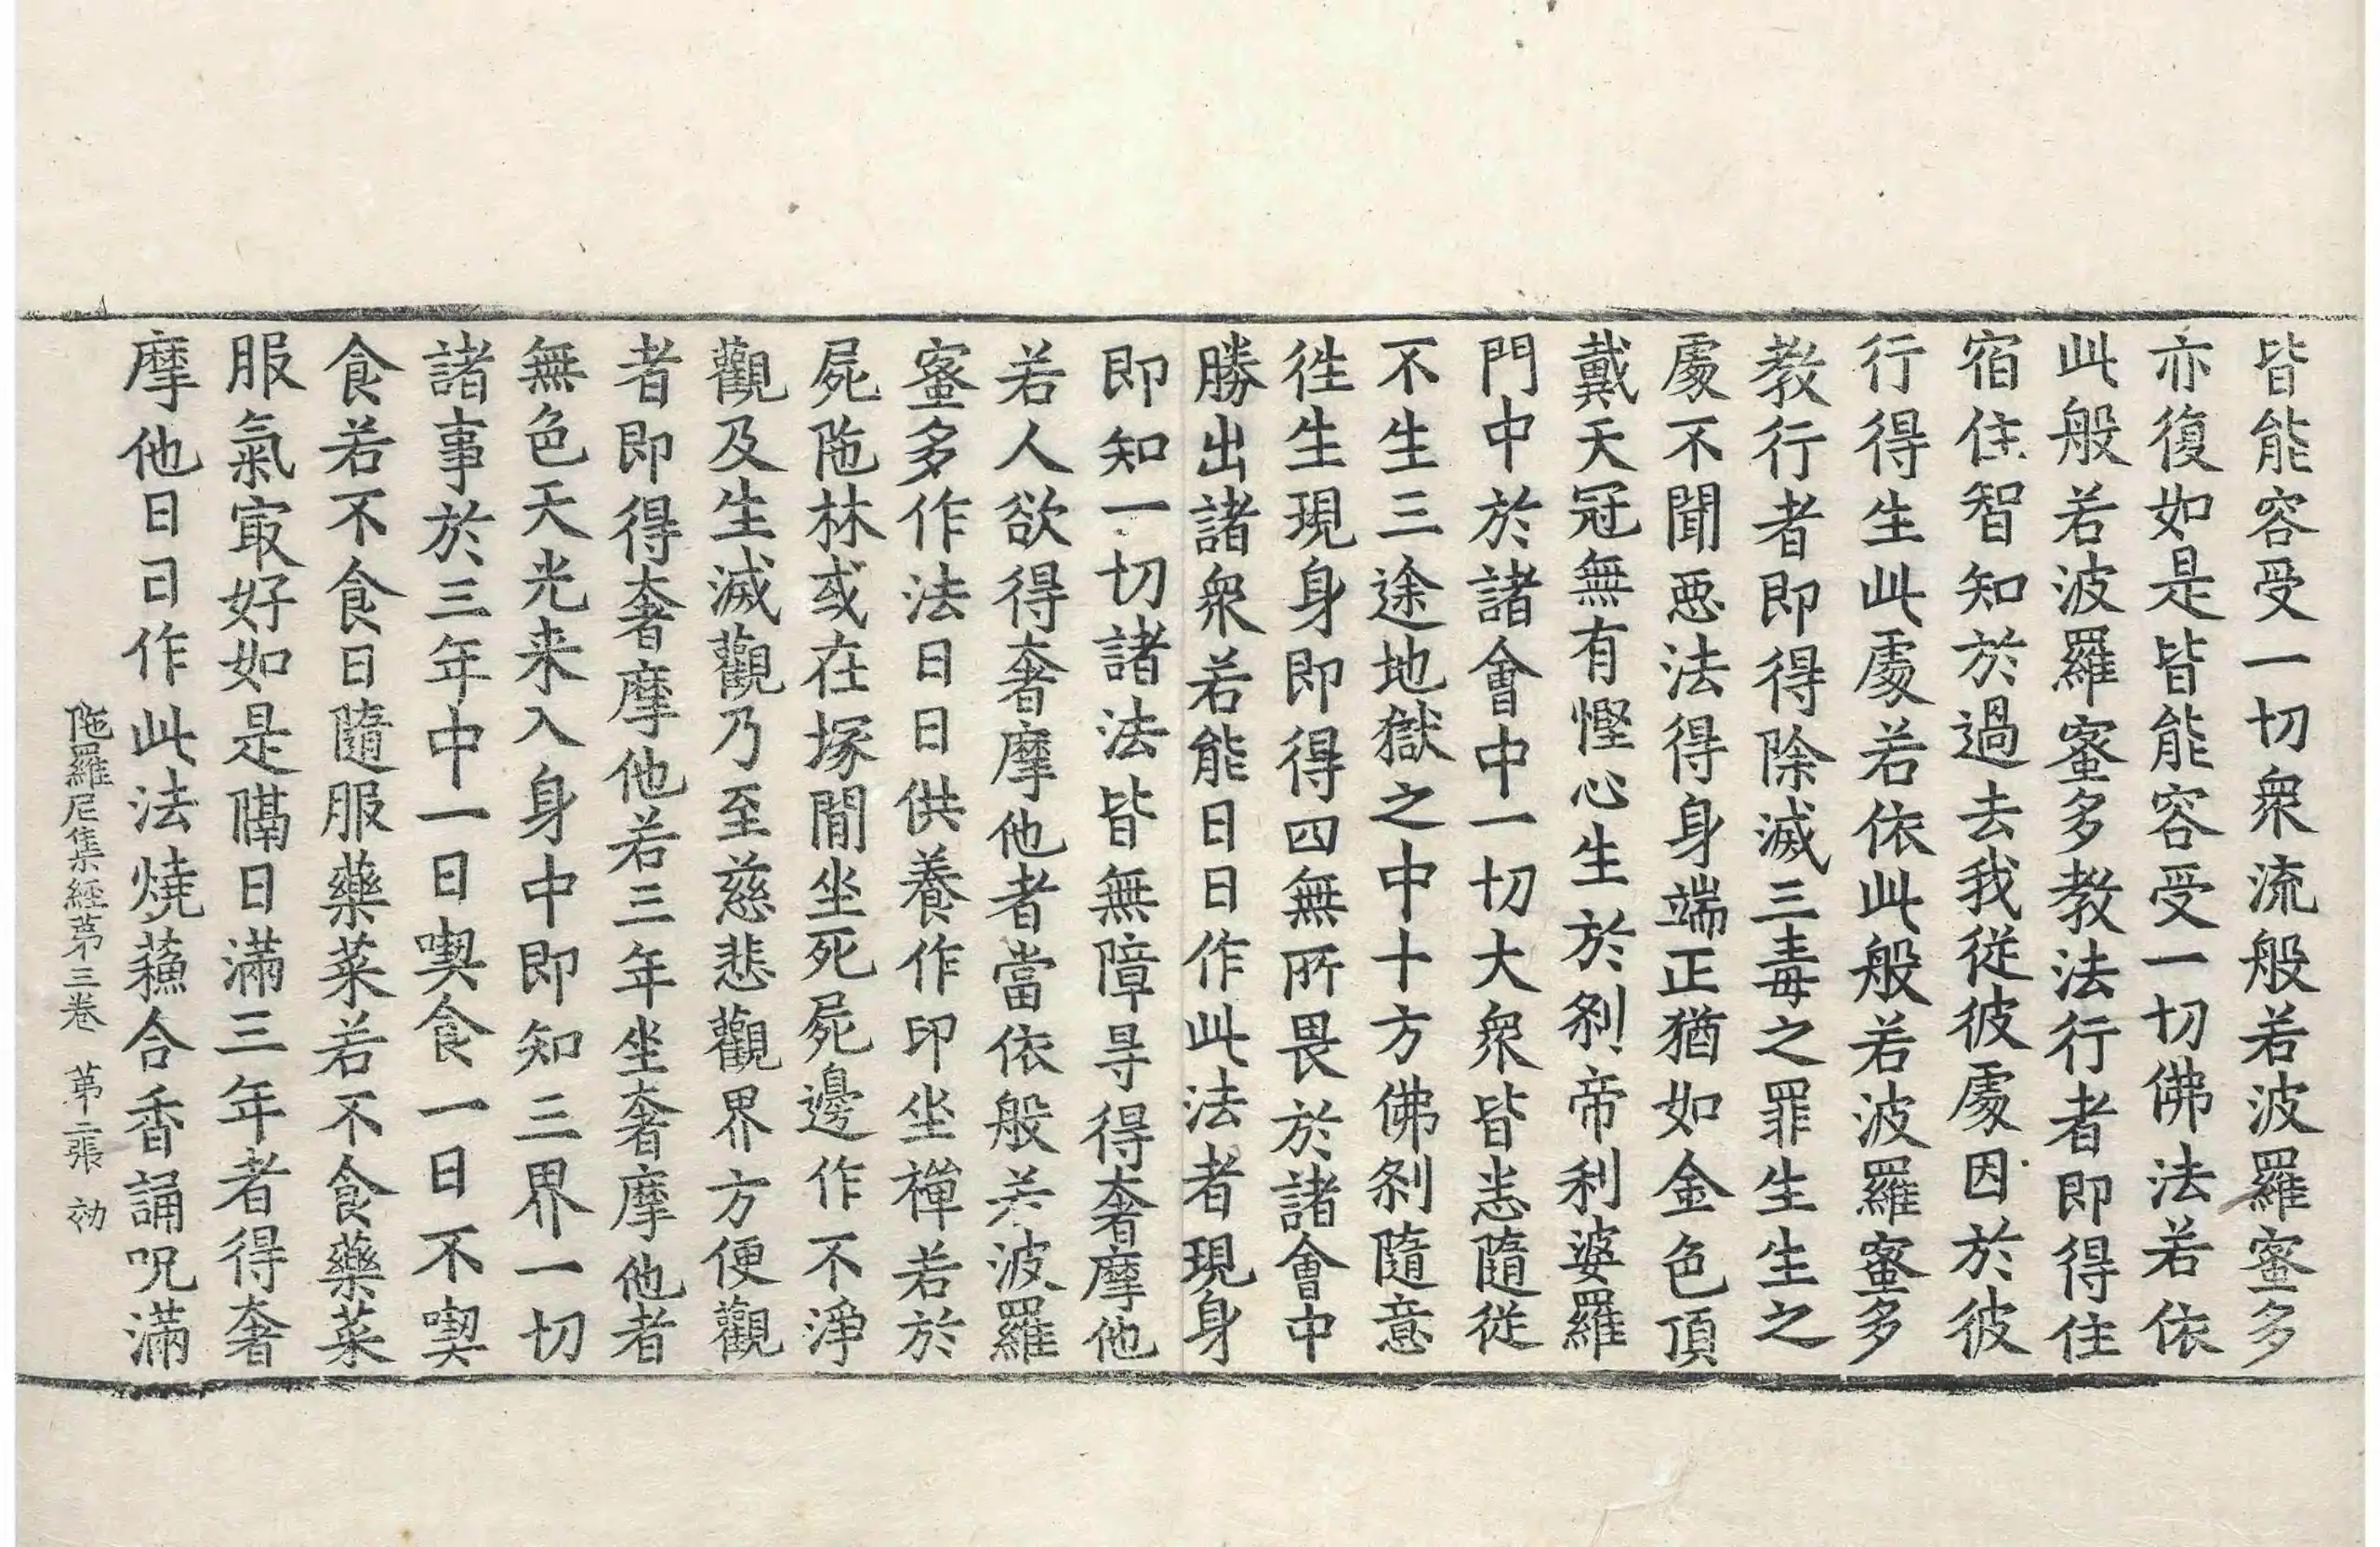 皆能容受一切衆流般若波羅蜜多
亦復如是皆能容受一切佛法若依
此般若波羅蜜多教法行者即得住
宿住智知於過去我從彼處因於彼
行得生此處若依此般若波羅蜜多
教行者即得除滅三毒之罪生生之
處不聞惡法得身端正猶如金色頂
戴天冠無有慳心生於剎帝利婆羅
門中於諸會中一切大衆皆恚隨從
不生三途地獄之中十方佛剎隨意
徃生現身即得四無所畏於諸會中
勝出諸衆若能日日作此法者現身
即知一切諸法皆無障㝵得奢摩他
若人欲得奢摩他者當依般若波羅
蜜多作法日日供養作印坐禪若於
屍陁林或在塚間坐死屍邊作不淨
觀及生滅觀乃至慈悲觀界方便觀
者即得奢摩他若三年坐奢摩他者
無色天光来入身中即知三界一切
諸事於三年中一日喫食一日不喫
食若不食日隨服藥菜若不食藥菜
服氣㝡好如是隔日滿三年者得奢
摩他日日作此法燒蘓合香誦呪滿
陁羅尼集經苐三卷 苐二張 効